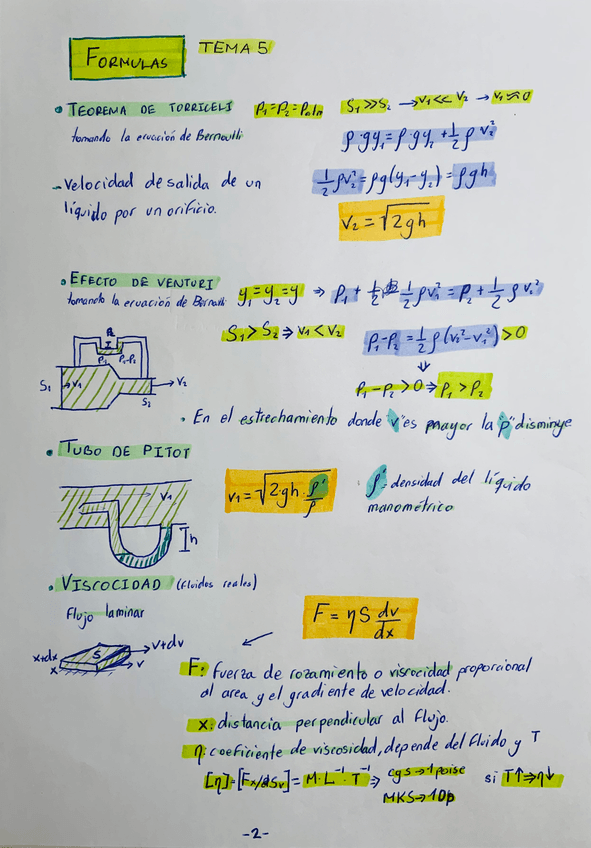 FORMULAS TEMA 5
• TEOREMA DE TORRICELI P₁=P₂=Patm S₁>>S₂ → v₁<<v₂ → v₁≈0
tomando la ecuación de Bernoulli ρ·gy₁=ρ·gy₂+½ρv₂²
→Velocidad de salida de un ½ρv₂²=ρg(y₁-y₂)=ρgh
líquido por un orificio. v₂=√2gh
• EFECTO DE VENTURI y₁=y₂=y ⇒ P₁+½ρv₁²=P₂+½ρv₂²
tomando la ecuación de Bernoulli
S₁>S₂⇒v₁<v₂ P₁-P₂=½ρ(v₂²-v₁²)>0
⇓
P₁-P₂>0⇒P₁>P₂
P₂ P₁-P₂
S₁ v₁ v₂
S₂
• En el estrechamiento donde "v" es mayor la "p" disminuye
• TUBO DE PITOT
v₁=√2gh ρ'/ρ ρ'=densidad del líquido
manométrico
v₁
h
• VISCOCIDAD (fluidos reales)
Flujo laminar F=ηS dv/dx
x+dx S v+dv
x v
F: fuerza de rozamiento o viscocidad proporcional
al area y el gradiente de velocidad.
x: distancia perpendicular al flujo.
η: coeficiente de viscosidad, depende del fluido y T
[η]=[Fx/dSv]=M·L⁻¹·T⁻¹⇒ cgs→1poise si T↑⇒η↓
MKS→10p
-2-